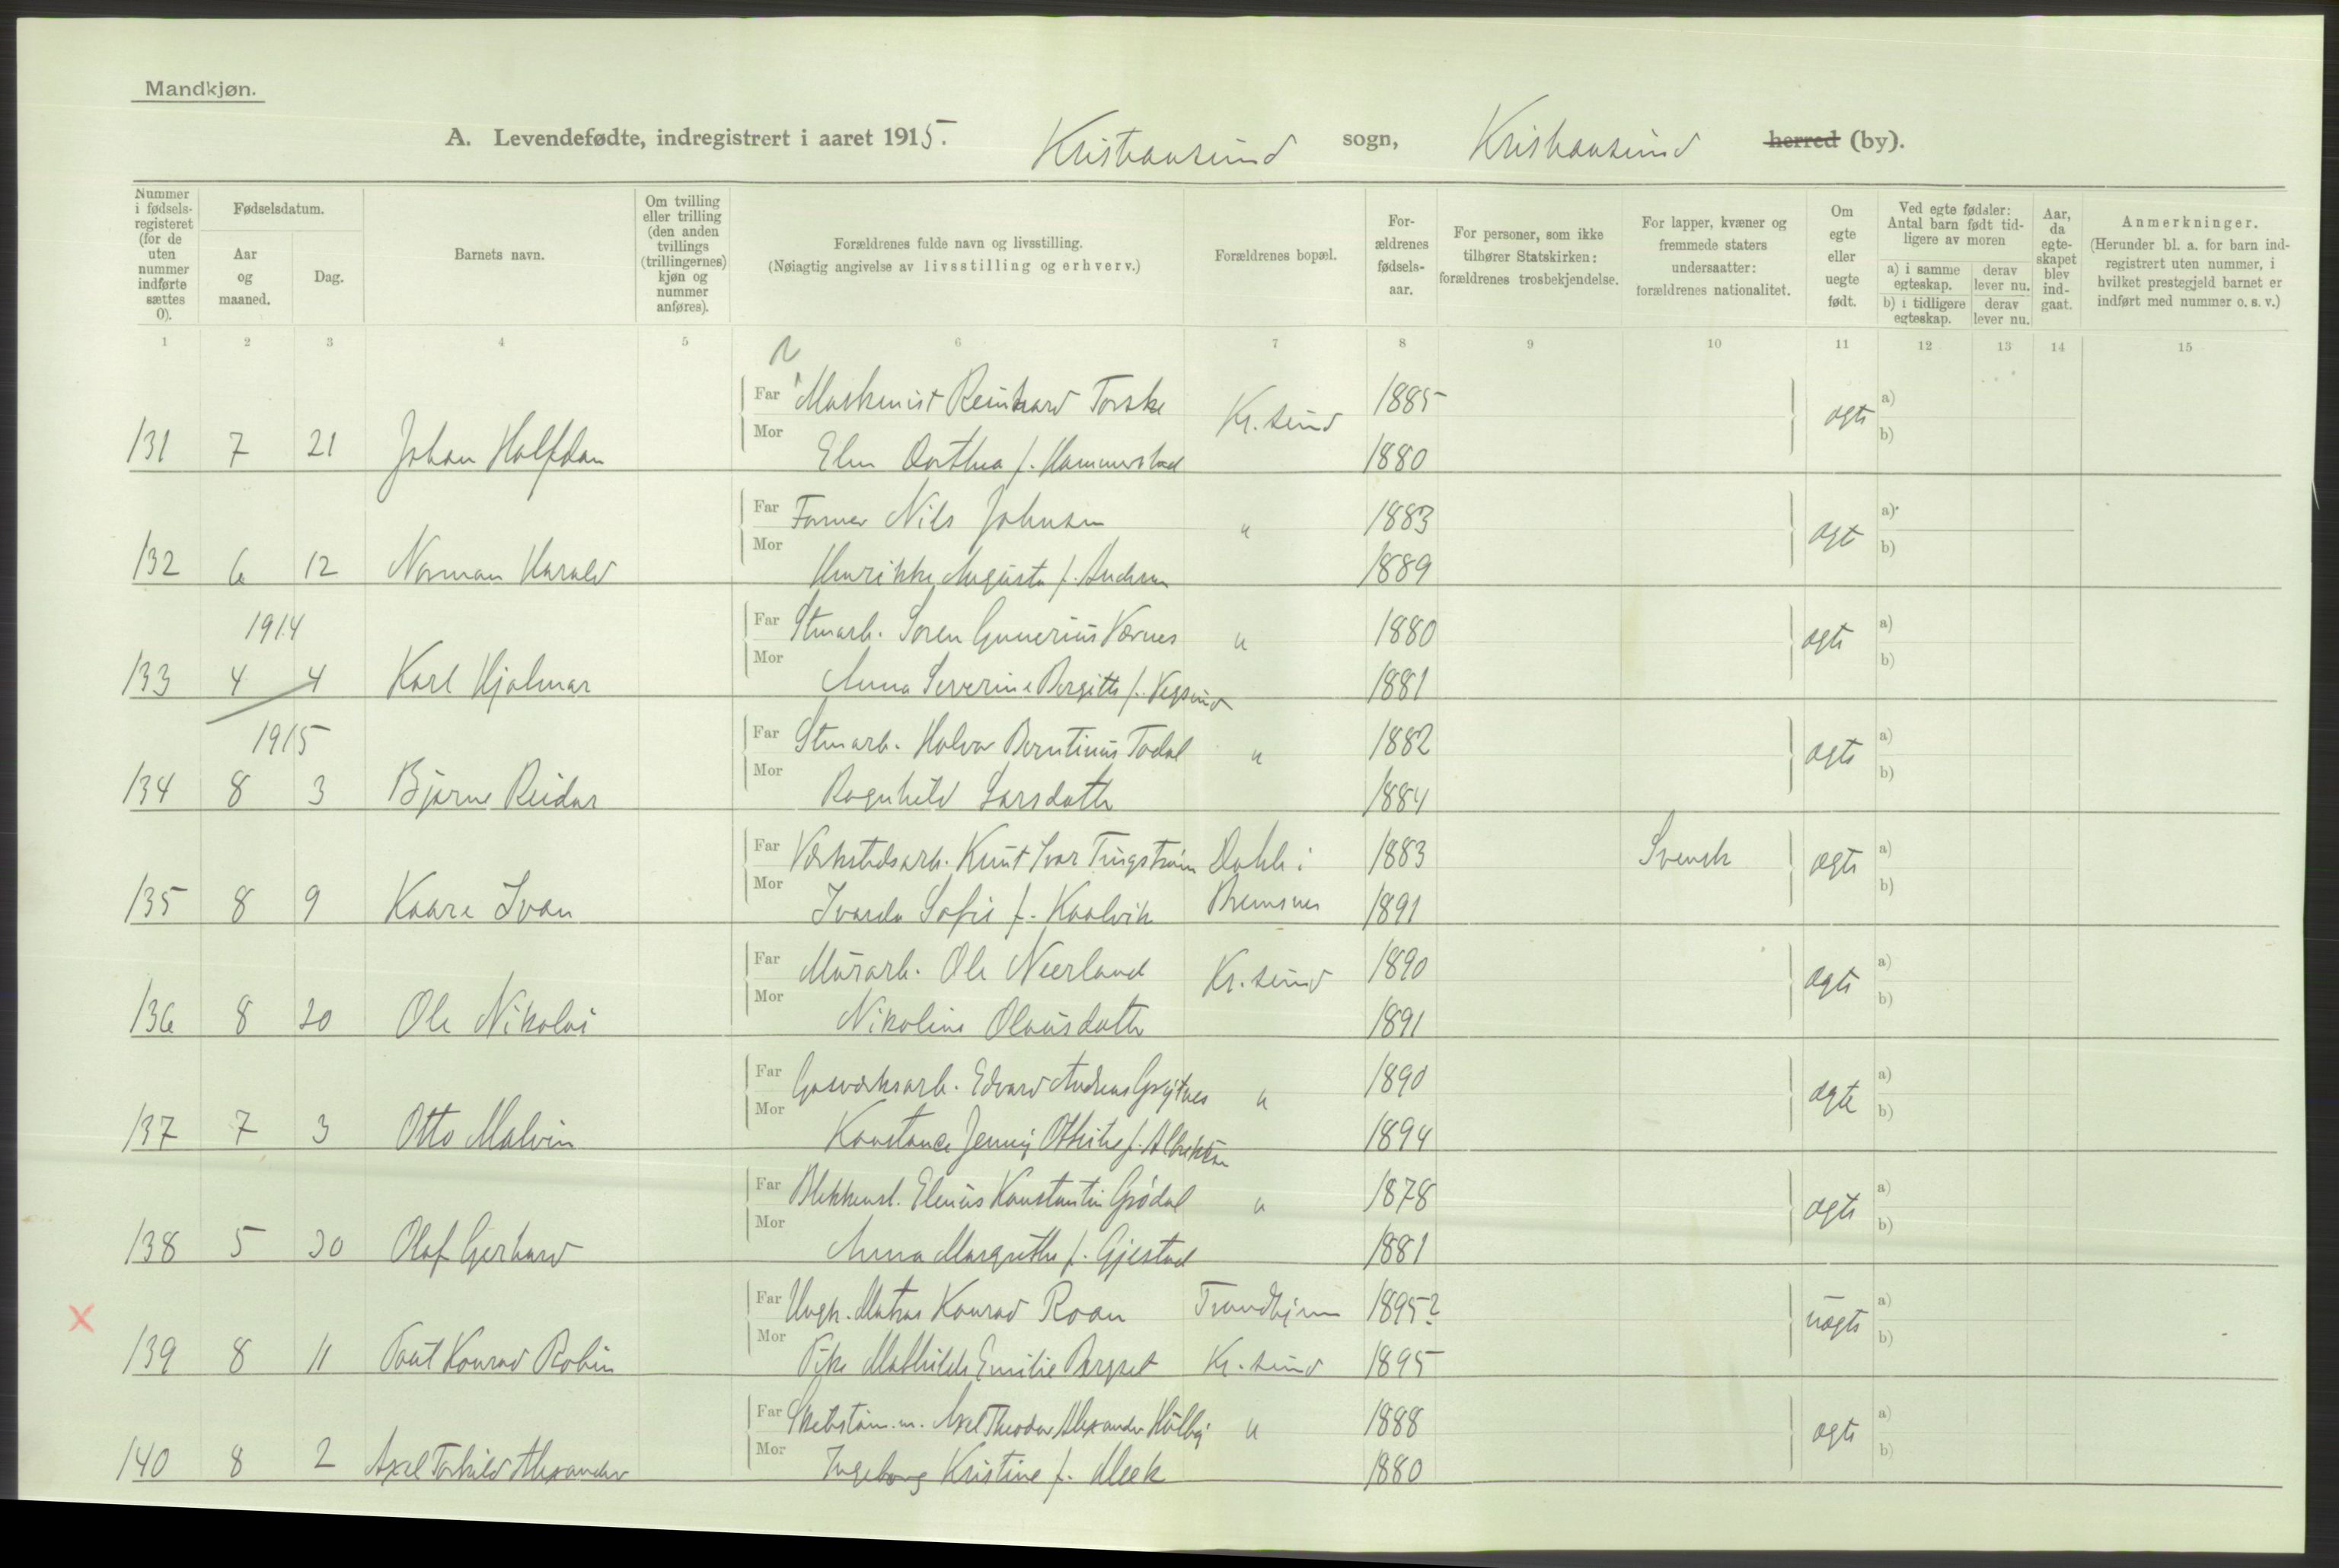 Mandkjøn.
A. Levendefødte, indregistrert i aaret 1915. Kristiansund sogn, Kristiansund herred (by).
Nummer i fødsels-registeret (for de uten nummer indførte sættes 0).
Fødselsdatum.
Aar og maaned.
Dag.
Barnets navn.
Om tvilling eller trilling (den anden tvillings (trillingernes) kjøn og nummer anføres).
Forældrenes fulde navn og livsstilling.
(Nøiagtig angivelse av livsstilling og erhverv.)
Forældrenes bopæl.
For-ældrenes fødsels-aar.
For personer, som ikke tilhører Statskirken: forældrenes trosbekjendelse.
For lapper, kvæner og fremmede staters undersaatter: forældrenes nationalitet.
Om egte eller uegte født.
Ved egte fødsler: Antal barn født tid-ligere av moren
a) i samme egteskap.
derav lever nu.
b) i tidligere egteskap.
derav lever nu.
Aar, da egte-skapet blev ind-gaat.
Anmerkninger.
(Herunder bl. a. for barn ind-registrert uten nummer, i hvilket prestegjeld barnet er indført med nummer o. s. v.)
1 2 3 4 5 6 7 8 9 10 11 12 13 14 15
Far Maskinist Reinhard Torske Kr.sund 1885 ægte a)
131 7 21 Johan Halfdan Mor Elen Dorthea f. Hammerstad 1880 b)
Far Farmer Nils Johnsen " 1883 ægt a)
132 6 12 Norman Harald Mor Henrikke Augusta f. 1889 b)
1914 Far Stuearb. Søren Gunerius Værnes " 1880 ægte a)
133 4 4 Karl Hjalmar Mor Anna Severine Bergitte f. Vegsund 1881 b)
1915 Far Stuearb. Halvor Berntinus Todal " 1882 ægte a)
134 8 3 Bjarne Reidar Mor Ragnhild Larsdatter 1884 b)
Far Værkstedsarb. Knut Ivar Tingstrøm Dahle i 1883 Svensk ægte a)
135 8 9 Kaare Ivan Mor Ivarda Sofie f. Kaalvik Bremsnes 1891 b)
Far Murarb. Ole Neerland Kr.sund 1890 ægte a)
136 8 20 Ole Nikolai Mor Nikoline Olausdatter 1891 b)
Far Gasverksarb. Edvard Andreas " 1890 ægte a)
137 7 3 Otto Malvin Mor Konstance Jenny Othilie f. Albrektsen 1894 b)
Far Blikkensl. Elenius Konstantin Grødal " 1878 ægte a)
138 5 30 Olaf Gerhard Mor Anna Margrethe f. Gjestad 1881 b)
Far Ungk. Matros Konrad Roan Trondhjem 1895? uægte a)
X 139 8 11 Paul Konrad Robin Mor Pike Mathilde Emilie Bergset Kr.sund 1895 b)
Far Axel Theodor Alexander " 1888 ægte a)
140 8 2 Axel Torkild Alexander Mor Ingeborg Kristine f. Meek 1880 b)